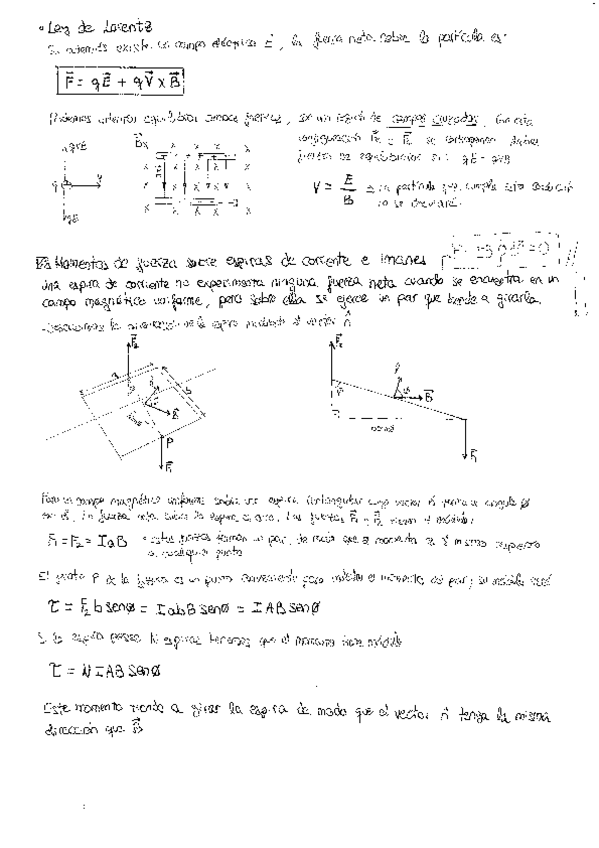 • Ley de Lorentz
Si además existe un campo eléctrico E⃗, la fuerza neta sobre la partícula es:
F⃗ = qE⃗ + qV⃗ x B⃗
Podemos entonces equilibrar ambas fuerzas, en un región de campos cruzados. En esta
configuración se contraponen
fuerzas en equilibrio si: qE = qvB
V = E/B ⇒ una partícula que cumpla esta condición
no se desviará.
qE
q
V
B⃗
x x x x
Momentos de fuerza sobre espiras de corriente e imanes
una espira de corriente no experimenta ninguna fuerza neta cuando se encuentra en un
campo magnético uniforme, pero sobre ella se ejerce un par que tiende a girarla.
Describimos la orientación de la espira mediante el vector n̂
F⃗₂
a
b
B⃗
P
F⃗₁
F⃗₂
B⃗
F⃗₁
Para un campo magnético uniforme sobre una espira rectangular cuyo vector n̂ forma un ángulo ø
con B⃗, la fuerza neta sobre la espira es cero. Las fuerzas F⃗₁ y F⃗₂ tienen el módulo:
F₁ = F₂ = IaB
estas fuerzas forman un par, de modo que el momento es el mismo respecto
a cualquier punto
El punto P de la figura es un punto conveniente para calcular el momento del par; su módulo será
τ = F₂ b senø = IabB senø = IAB senø
Si la espira posee N espiras tenemos que el momento tiene módulo
τ = NIAB senø
Este momento tiende a girar la espira de modo que el vector n̂ tenga la misma
dirección que B⃗